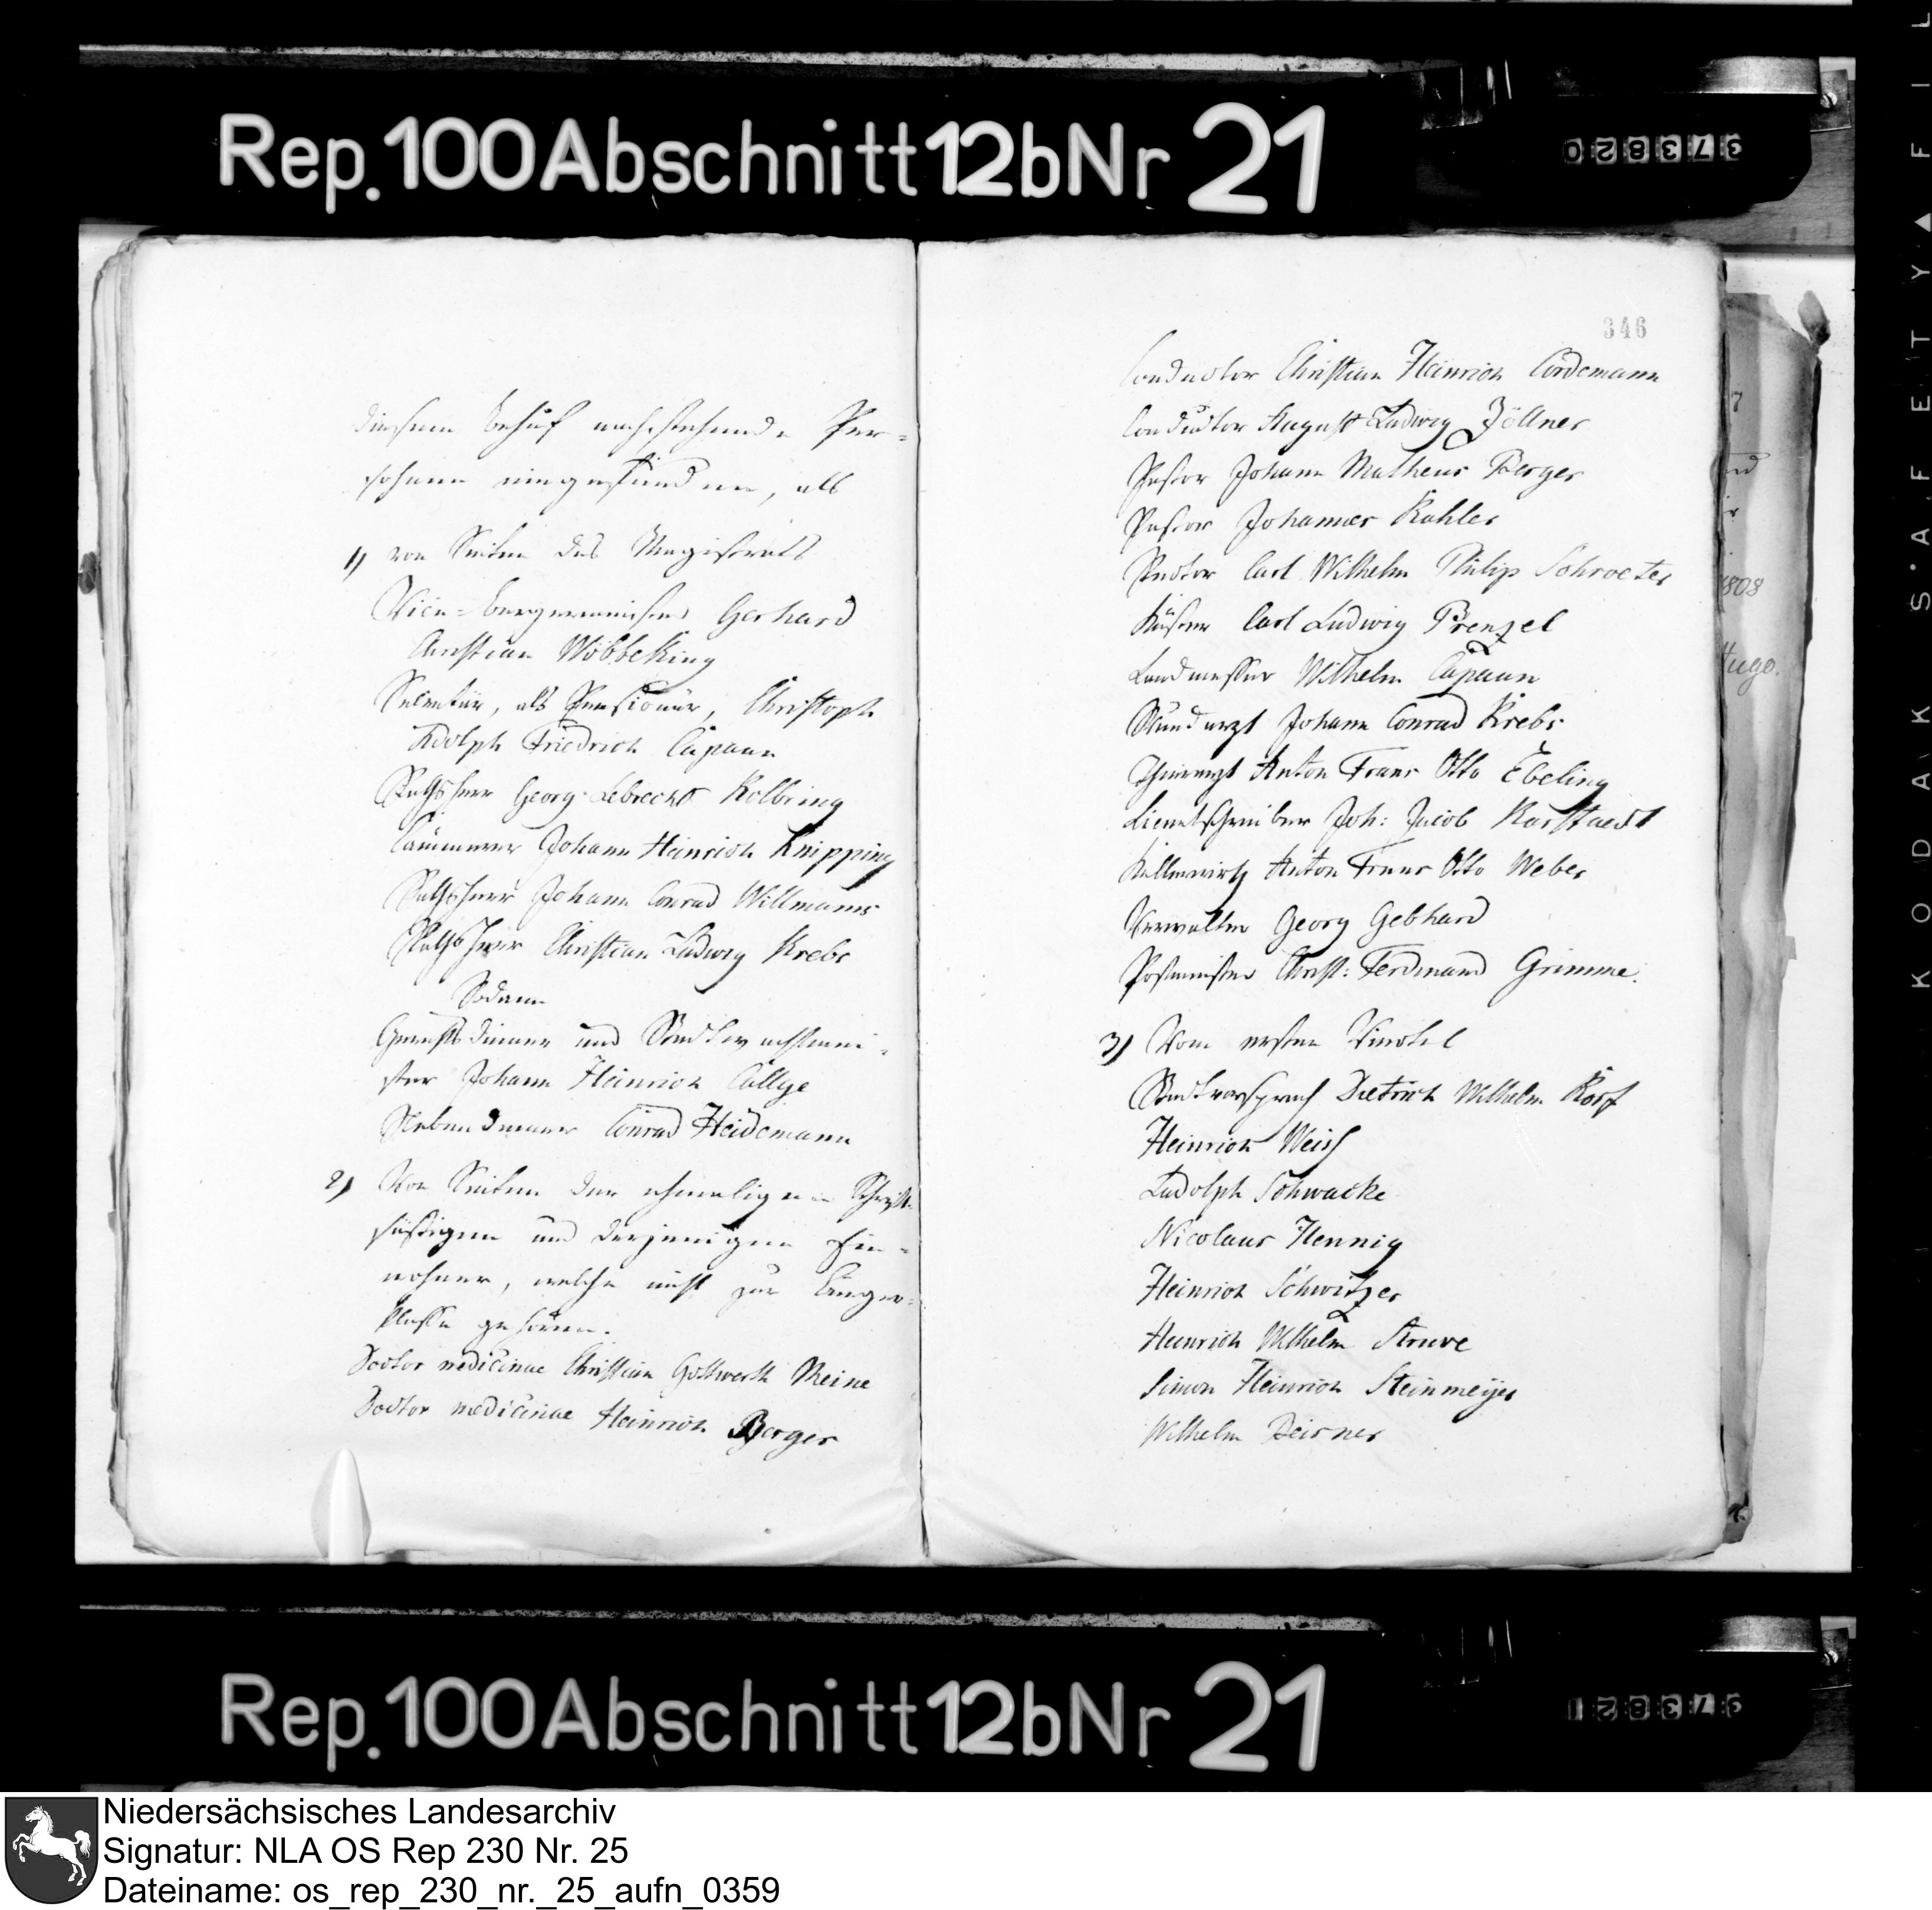 Rep. 100 Abschnitt 12b Nr 21
973820
diesem Behuf nachstehende Per=
sohnen eingefunden, als
1) von Seiten des Magistrats
Vice=Bürgermeister Gerhard
Christian Wöbbeking
Secretär, als Pensionär, Christoph
Adolph Friedrich Capaun
Rathsherr Georg Lebrecht Kölbring
Cämmerer Johann Heinrich Knipping
Rathsherr Johann Conrad Willmanns
Rathsherr Christian Ludwig Krebs
Sodann
Gerichtsdiener und Stadtwachtmei=
ster Johann Heinrich Cällge
Nebendiener Conrad Heidemann
2) Von Seiten der ehmaligen Schrift=
säßigen und derjenigen Ein=
wohner, welche nicht zur Bürger=
klasse gehören.
Doctor medicinae Christian Gottwerth Meine
Doctor medicinae Heinrich Berger
346
Conductor Christian Heinrich Cordemann
Conductor August Ludwig Zöllner
Pastor Johann Matheus Berger
Pastor Johannes Kahler
Rector Carl Wilhelm Philip Schroeter
Küster Carl Ludwig Prenzel
Landmesser Wilhelm Capaun
Wundarzt Johann Conrad Krebs
Thierarzt Anton Franz Otto Ebeling
Licentschreiber Joh: Jacob Karstaedt
Kellerwirth Anton Franz Otto Weber
Verwalter Georg Gebhard
Postmeister Christ: Ferdinand Grimme.
3) Vom ersten Viertel
Stadtvorsprach Dietrich Wilhelm Korf
Heinrich Weiß
Ludolph Schwacke
Nicolaus Hennig
Heinrich Schwitzer
Heinrich Wilhelm Struve
Simon Heinrich Steinmeijer
Wilhelm Deisner
1808
Hugo.
KODAK SAFETY FIL
Rep. 100 Abschnitt 12b Nr 21
973821
Niedersächsisches Landesarchiv
Signatur: NLA OS Rep 230 Nr. 25
Dateiname: os_rep_230_nr._25_aufn_0359